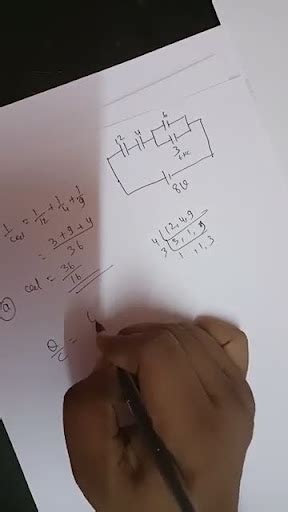 12 4 6
3
6MC
8V
1/Ceq = 1/12 + 1/4 + 1/9
= 3 + 9 + 4 / 36
Ceq = 36/16
4 | 12, 4, 9
3 | 3, 1, 9
1, 1, 3
a
Q/C =